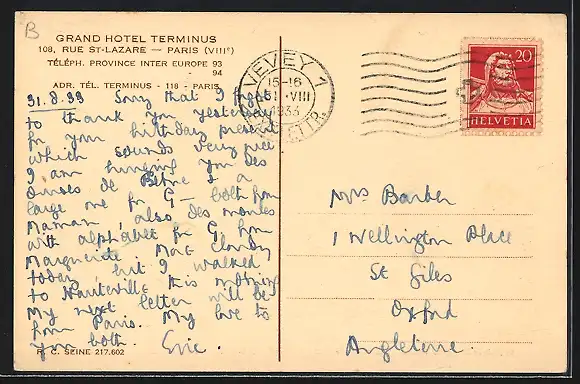 B
GRAND HOTEL TERMINUS
108, RUE ST-LAZARE — PARIS (VIIIᵉ)
TÉLÉPH. PROVINCE INTER EUROPE 93
94
ADR. TÉL. TERMINUS - 118 - PARIS
31.8.33 Sorry that I forgot
to thank you yesterday
for your birthday present
which sounds very nice
I am bringing you des
de Berne & a
large one for G — both from
Maman, also des
with alphabet for G from
Marguerite. More cloudy
today, but I walked
to Hauteville this morning
My next letter will be
from Paris. My love to
you both. Eric.
R. C. SEINE 217.602
VEVEY 1
15-16
31.VIII
1933
20
HELVETIA
Mrs Barber
1 Wellington Place
St Giles
Oxford
Angleterre